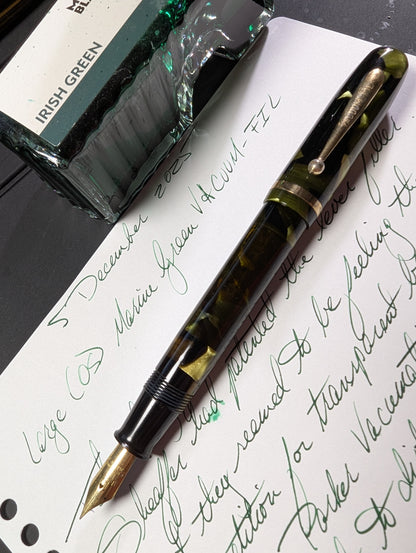 IRISH GREEN
5 December 2025
Large (OS) Marine Green VACUUM-FIL
Sheaffer had patented the lever filler
they seemed to be feeling the
for transparent
Parker Vacumat
to di